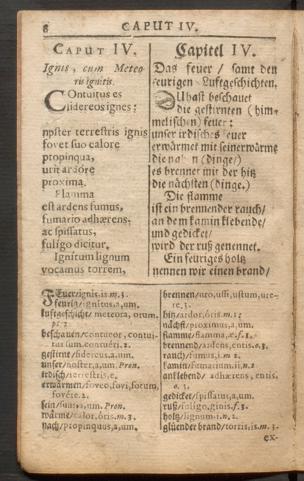 8 CAPUT IV.
CAPUT IV.
Ignis, cum Meteo-
ris ignitis.
COntuitus es
sidereos ignes:
noster terrestris ignis
fovet suo calore
propinqua,
urit ardore
proxima.
Flamma
est ardens fumus,
fumario adhærens,
ac spissatus,
fuligo dicitur.
Ignitum lignum
vocamus torrem,
Capitel IV.
Das feuer / samt den
feurigen Luftgeschichten.
DU hast beschauet
die gestirnten (him-
melischen) feuer:
unser irdisches feuer
erwärmet mit seiner wärme
die nahen (dinge)
es brennet mit der hitz
die nächsten (dinge.)
Die flamme
ist ein brennender rauch/
an dem kamin klebende/
und gedicket/
wird der ruß genennet.
Ein feuriges holtz
nennen wir einen brand/
FEuer/ignis,is.m.3.
feurich/ignitus,a,um.
luftgeschicht/meteora, orum.
pl. 2.
beschauen/contueor, contui-
tus sum. contueri. 2.
gestirnt/sidereus.a,um.
unser/noster,a,um. Pron.
irdisch/terrestris,e.
erwärmen/foveo,fovi,fotum,
fovére. 2.
sein/suus,a,um. Pron.
wärme/calor.óris.m.3.
nach/propinquus,a,um.
brennen/uro,ussi,ustum,ure-
re. 3.
hitz/ardor,óris.m.3.
nächst/proximus,a,um.
flamme/flamma,æ.f.1.
brennend/ardens,entis.o.3.
rauch/fumus,i.m.2.
kamin/fumarium,ii.n.2
anklebend/adhærens, entis.
o. 3.
gedicket/spissatus,a,um.
ruß/fuligo,ginis.f.3.
holtz/lignum.i.n.2.
glüender brand/torris,is.m.3.
ex-